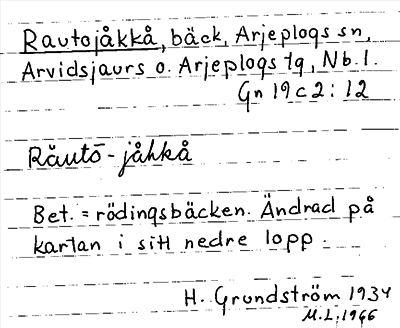 Rautojåkkå, bäck, Arjeplogs sn,
Arvidsjaurs o. Arjeplogs tg, Nb. l.
Gn 19 c 2 : 12
Răutō - jåhkå
Bet. = rödingsbäcken. Ändrad på
kartan i sitt nedre lopp.
H. Grundström 1934
M.L; 1966